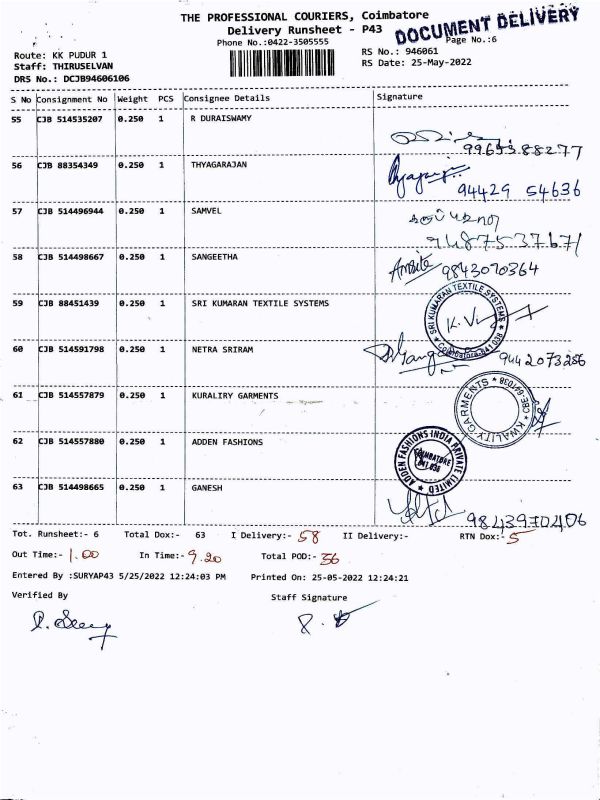 THE PROFESSIONAL COURIERS, Coimbatore
Delivery Runsheet - P43
DOCUMENT DELIVERY
Phone No.:0422-3505555
Page No.:6
Route: KK PUDUR 1
RS No.: 946061
Staff: THIRUSELVAN
RS Date: 25-May-2022
DRS No.: DCJB94606106
S No Consignment No Weight PCS Consignee Details Signature
55 CJB 514535207 0.250 1 R DURAISWAMY
56 CJB 88354349 0.250 1 THYAGARAJAN 94429 54636
57 CJB 514496944 0.250 1 SAMVEL
58 CJB 514498667 0.250 1 SANGEETHA 9843070364
59 CJB 88451439 0.250 1 SRI KUMARAN TEXTILE SYSTEMS
SRI KUMARAN TEXTILE SYSTEMS Coimbatore-641 038
60 CJB 514591798 0.250 1 NETRA SRIRAM 9442073256
61 CJB 514557879 0.250 1 KURALIRY GARMENTS
KWALITY GARMENTS CBE-641038
62 CJB 514557880 0.250 1 ADDEN FASHIONS
ADDEN FASHIONS INDIA PRIVATE LIMITED COIMBATORE 641 038
63 CJB 514498665 0.250 1 GANESH 9843970406
Tot. Runsheet:- 6 Total Dox:- 63 I Delivery:- 58 II Delivery:- RTN Dox:- 5
Out Time:- 1.00 In Time:- 9.20 Total POD:- 36
Entered By :SURYAP43 5/25/2022 12:24:03 PM Printed On: 25-05-2022 12:24:21
Verified By Staff Signature